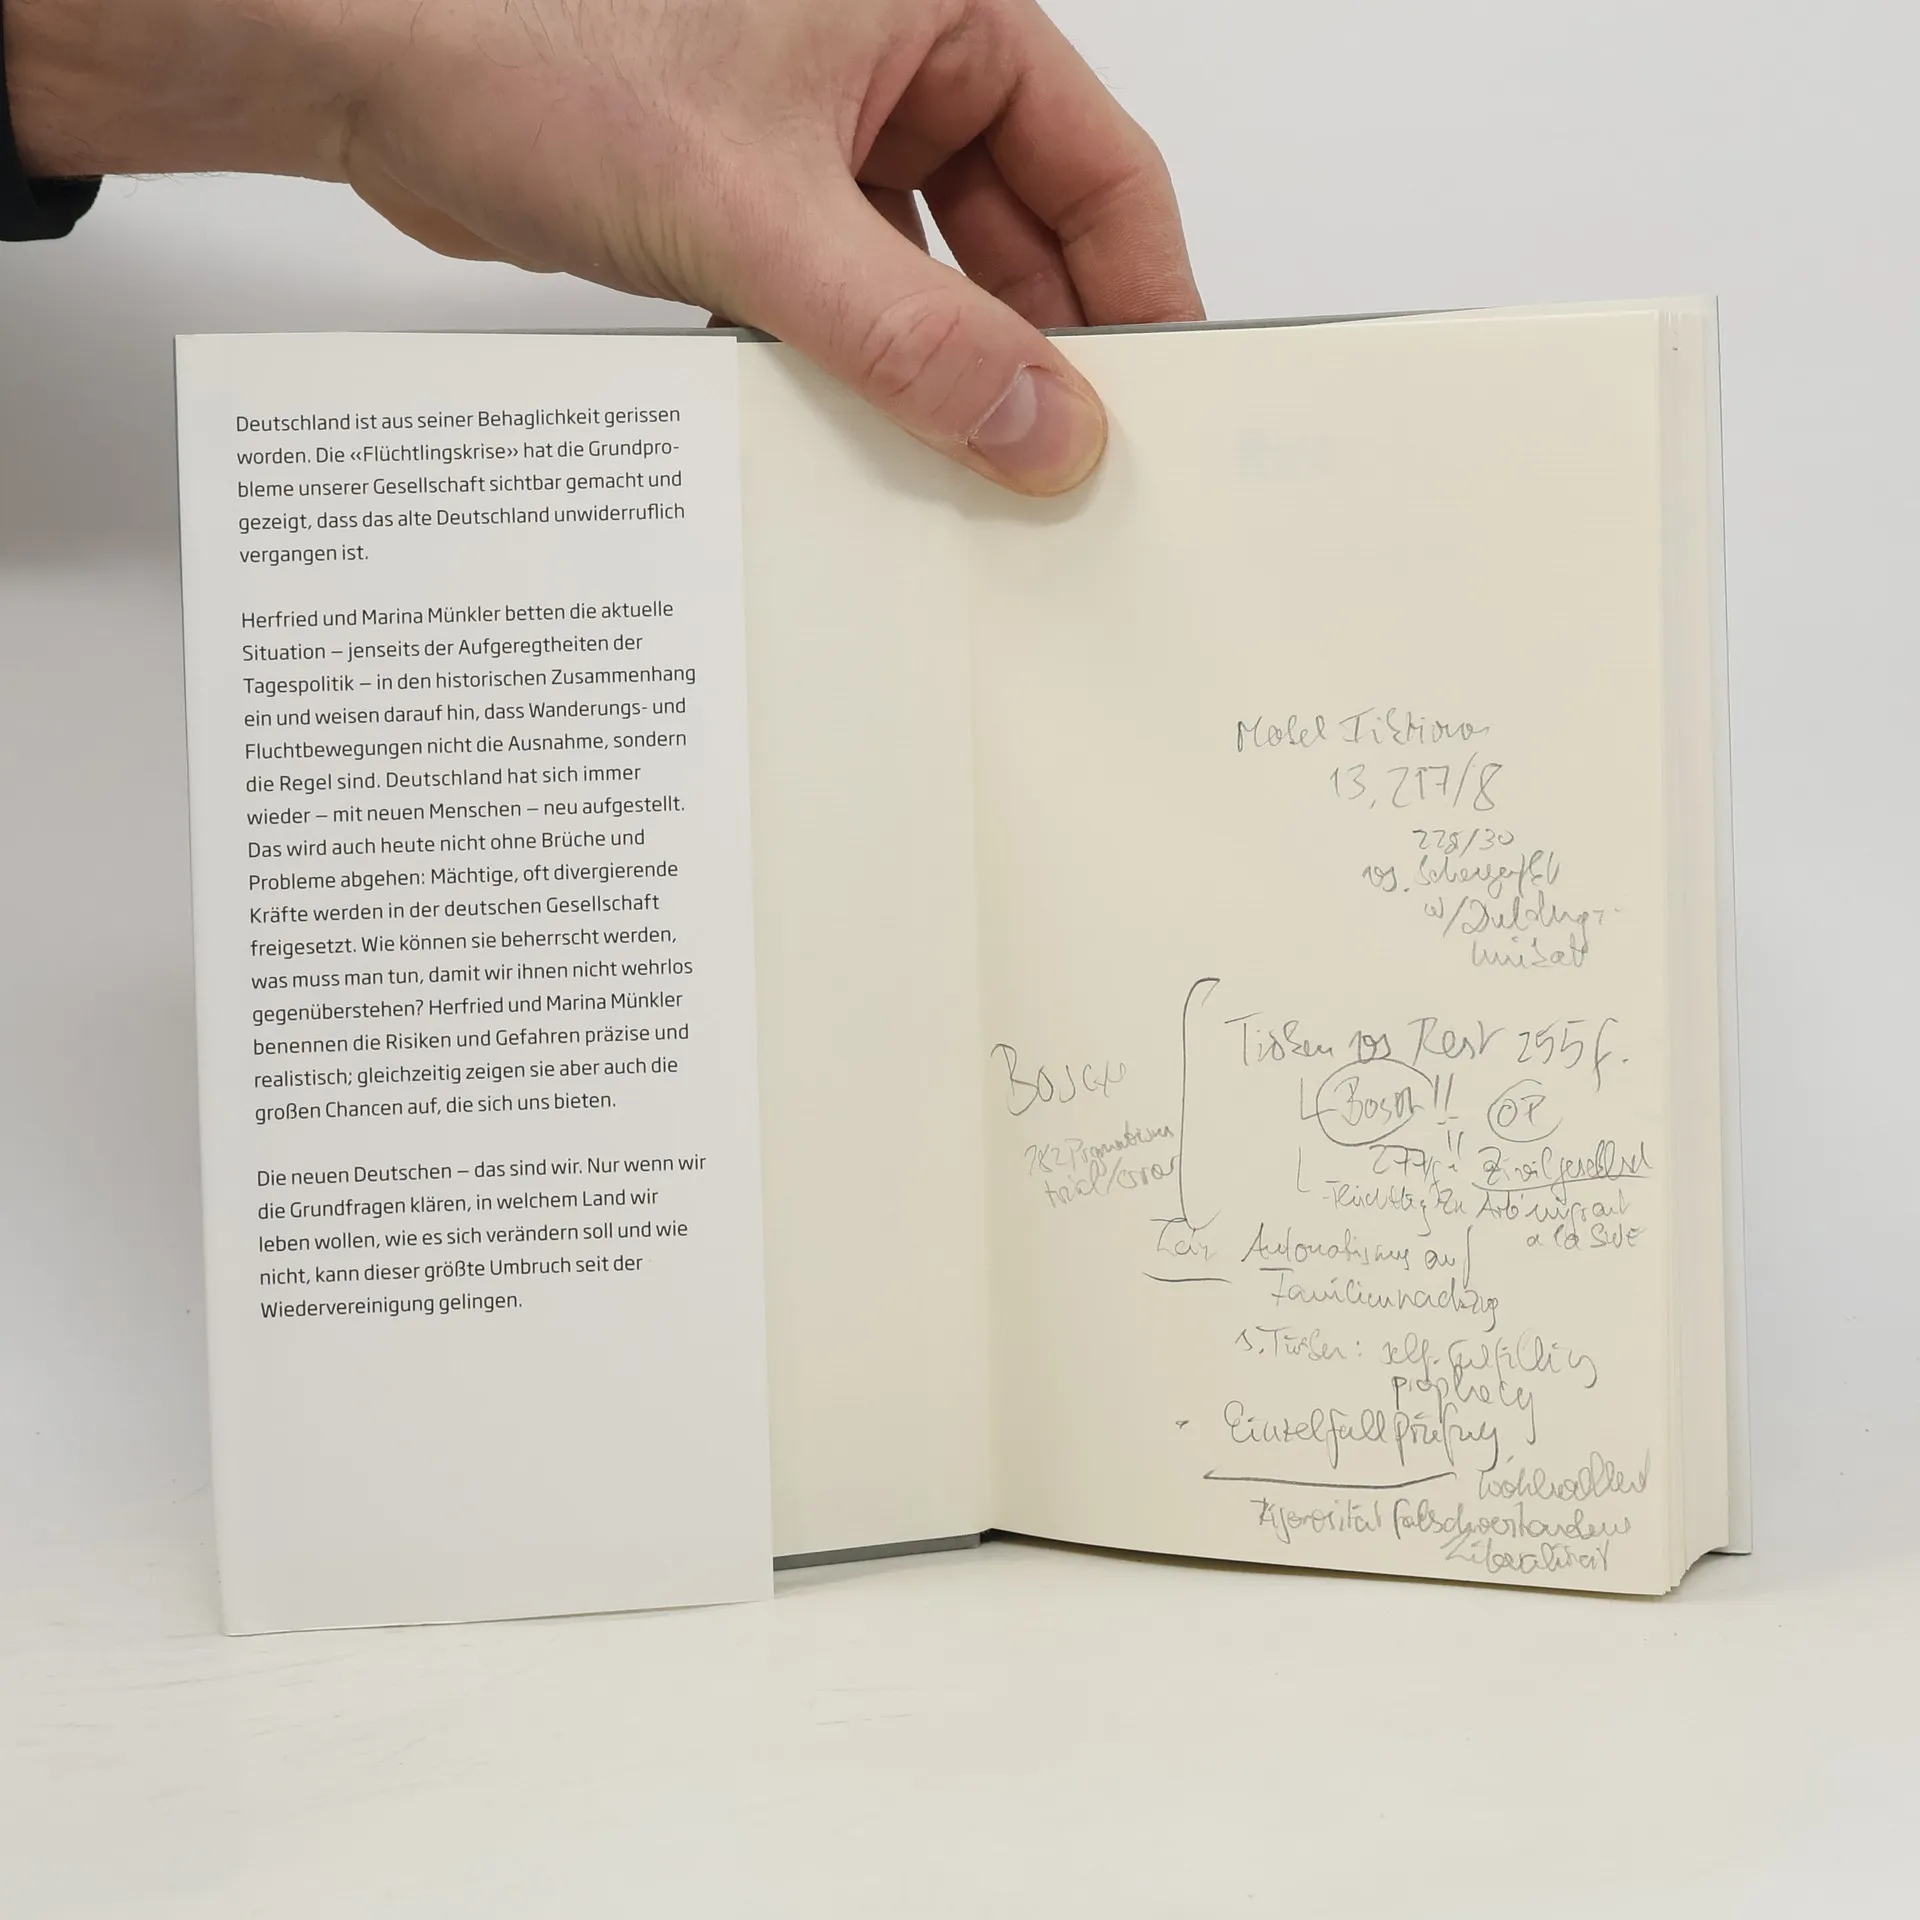 Deutschland ist aus seiner Behaglichkeit gerissen
worden. Die «Flüchtlingskrise» hat die Grundpro-
bleme unserer Gesellschaft sichtbar gemacht und
gezeigt, dass das alte Deutschland unwiderruflich
vergangen ist.
Herfried und Marina Münkler betten die aktuelle
Situation – jenseits der Aufgeregtheiten der
Tagespolitik – in den historischen Zusammenhang
ein und weisen darauf hin, dass Wanderungs- und
Fluchtbewegungen nicht die Ausnahme, sondern
die Regel sind. Deutschland hat sich immer
wieder – mit neuen Menschen – neu aufgestellt.
Das wird auch heute nicht ohne Brüche und
Probleme abgehen: Mächtige, oft divergierende
Kräfte werden in der deutschen Gesellschaft
freigesetzt. Wie können sie beherrscht werden,
was muss man tun, damit wir ihnen nicht wehrlos
gegenüberstehen? Herfried und Marina Münkler
benennen die Risiken und Gefahren präzise und
realistisch; gleichzeitig zeigen sie aber auch die
großen Chancen auf, die sich uns bieten.
Die neuen Deutschen – das sind wir. Nur wenn wir
die Grundfragen klären, in welchem Land wir
leben wollen, wie es sich verändern soll und wie
nicht, kann dieser größte Umbruch seit der
Wiedervereinigung gelingen.
13, 217/8
Rest 255f.
trial/error
Automatismus auf
Familiennachzug
self-fulfilling
prophecy
Einzelfallprüfung
Liberalität